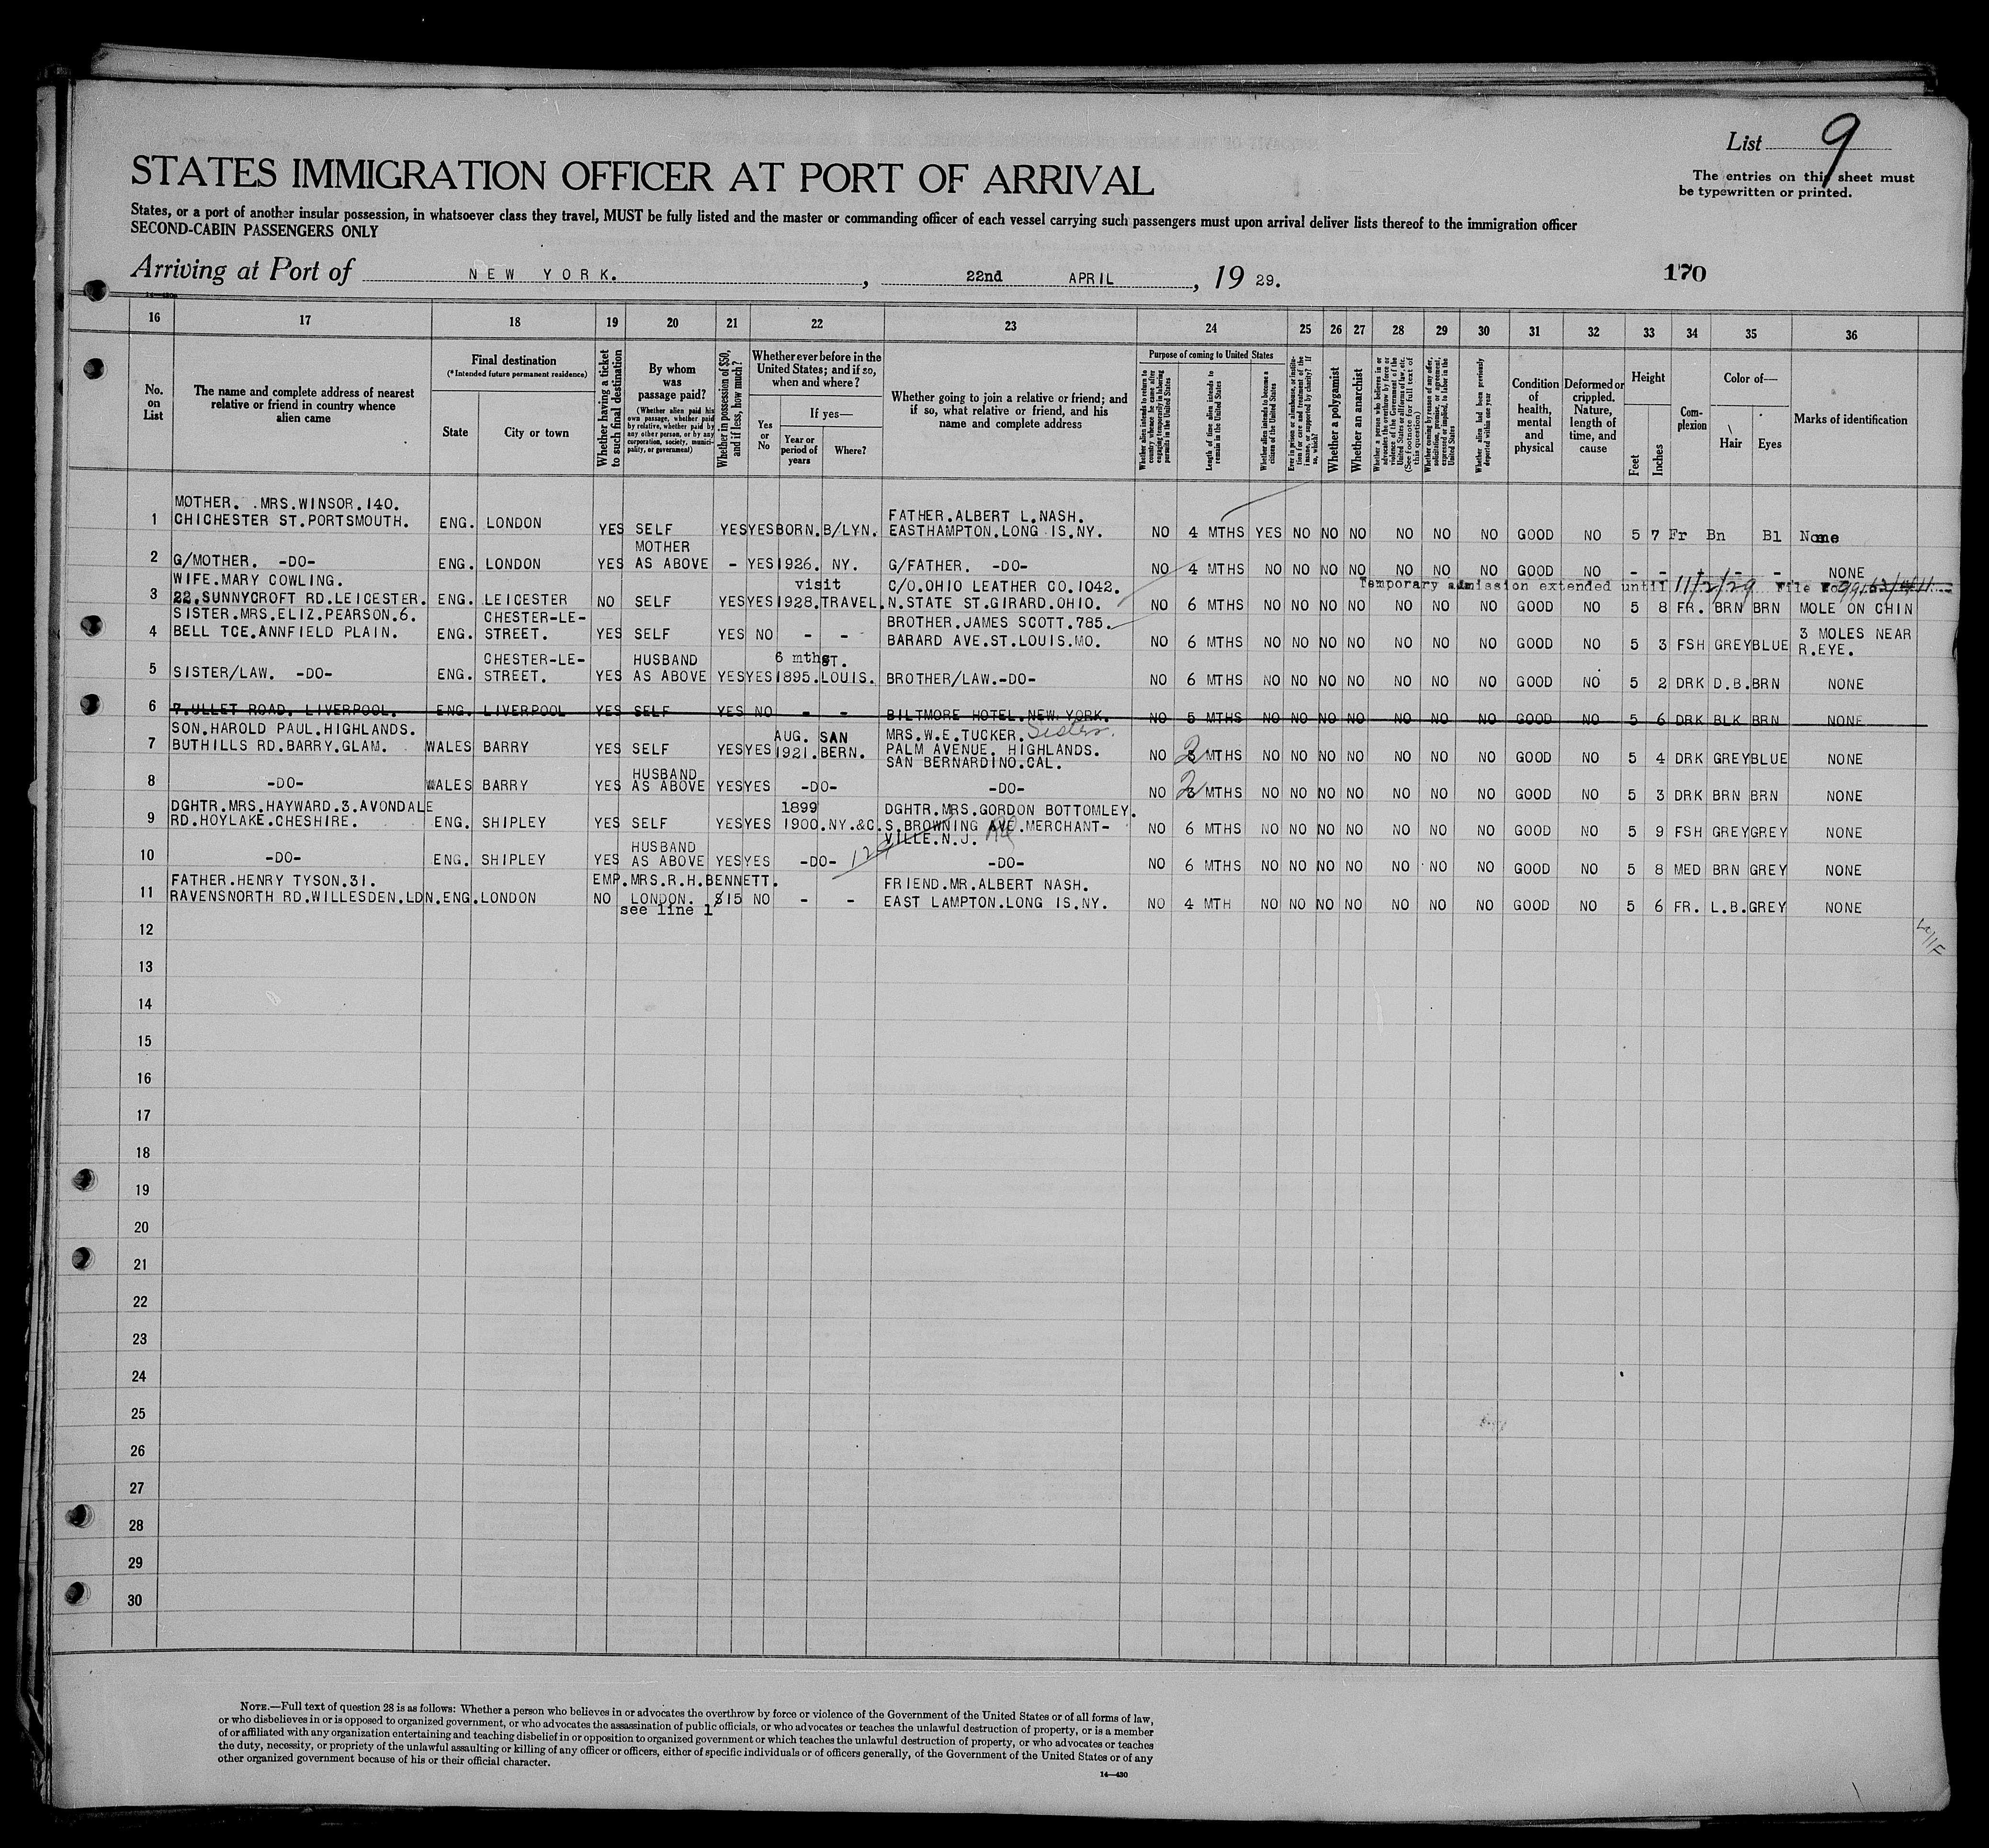 List 9
The entries on this sheet must
be typewritten or printed.
STATES IMMIGRATION OFFICER AT PORT OF ARRIVAL
States, or a port of another insular possession, in whatsoever class they travel, MUST be fully listed and the master or commanding officer of each vessel carrying such passengers must upon arrival deliver lists thereof to the immigration officer
SECOND-CABIN PASSENGERS ONLY
Arriving at Port of NEW YORK. , 22nd APRIL , 19 29. 170
16 17 18 19 20 21 22 23 24 25 26 27 28 29 30 31 32 33 34 35 36
No. on List
The name and complete address of nearest relative or friend in country whence alien came
Final destination
(*Intended future permanent residence)
State
City or town
Whether having a ticket to such final destination
By whom was passage paid?
(Whether alien paid his own passage, whether paid by relative, whether paid by any other person, or by any corporation, society, municipality, or government)
Whether in possession of $50, and if less, how much?
Whether ever before in the United States; and if so, when and where?
Yes or No
If yes—
Year or period of years
Where?
Whether going to join a relative or friend; and if so, what relative or friend, and his name and complete address
Purpose of coming to United States
Whether alien intends to return to country whence he came after engaging temporarily in laboring pursuits in the United States
Length of time alien intends to remain in the United States
Whether alien intends to become a citizen of the United States
Ever in prison or almshouse, or institution for care and treatment of the insane, or supported by charity? If so, which?
Whether a polygamist
Whether an anarchist
Whether a person who believes in or advocates the overthrow by force or violence of the Government of the United States or all forms of law, etc. (See footnote for full text of this question)
Whether coming by reason of any offer, solicitation, promise, or agreement, expressed or implied, to labor in the United States
Whether alien had been previously deported within one year
Condition of health, mental and physical
Deformed or crippled. Nature, length of time, and cause
Height
Feet
Inches
Complexion
Color of—
Hair
Eyes
Marks of identification
MOTHER. .MRS.WINSOR.140.
1 CHICHESTER ST.PORTSMOUTH. ENG. LONDON YES SELF YES YES BORN. B/LYN. FATHER.ALBERT L.NASH.
EASTHAMPTON.LONG IS.NY. NO 4 MTHS YES NO NO NO NO NO NO GOOD NO 5 7 Fr Bn Bl None
2 G/MOTHER. -DO- ENG. LONDON YES MOTHER
AS ABOVE - YES 1926. NY. G/FATHER. -DO- NO 4 MTHS NO NO NO NO NO NO NO GOOD NO - - - - - NONE
Temporary admission extended until 11/2/29 File No
WIFE.MARY COWLING.
3 22.SUNNYCROFT RD.LEICESTER. ENG. LEICESTER NO SELF YES YES visit
1928. TRAVEL. C/O.OHIO LEATHER CO.1042.
N.STATE ST.GIRARD.OHIO. NO 6 MTHS NO NO NO NO NO NO NO GOOD NO 5 8 FR. BRN BRN MOLE ON CHIN
SISTER.MRS.ELIZ.PEARSON.6.
4 BELL TCE.ANNFIELD PLAIN. ENG. CHESTER-LE-
STREET. YES SELF YES NO - - BROTHER.JAMES SCOTT.785.
BARARD AVE.ST.LOUIS.MO. NO 6 MTHS NO NO NO NO NO NO NO GOOD NO 5 3 FSH GREY BLUE 3 MOLES NEAR
R.EYE.
5 SISTER/LAW. -DO- ENG. CHESTER-LE-
STREET. YES HUSBAND
AS ABOVE YES YES 6 mths
1895. ST.
LOUIS. BROTHER/LAW.-DO- NO 6 MTHS NO NO NO NO NO NO NO GOOD NO 5 2 DRK D.B. BRN NONE
6 7.ULLET ROAD. LIVERPOOL. ENG. LIVERPOOL YES SELF YES NO - - BILTMORE HOTEL.NEW YORK. NO 5 MTHS NO NO NO NO NO NO NO GOOD NO 5 6 DRK BLK BRN NONE
SON.HAROLD PAUL.HIGHLANDS.
7 BUTHILLS RD.BARRY.GLAM. WALES BARRY YES SELF YES YES AUG.
1921. SAN
BERN. MRS.W.E.TUCKER. Sister.
PALM AVENUE. HIGHLANDS.
SAN BERNARDINO.CAL. NO 2 MTHS NO NO NO NO NO NO NO GOOD NO 5 4 DRK GREY BLUE NONE
8 -DO- WALES BARRY YES HUSBAND
AS ABOVE YES YES -DO- -DO- NO 2 MTHS NO NO NO NO NO NO NO GOOD NO 5 3 DRK BRN BRN NONE
DGHTR.MRS.HAYWARD.3.AVONDALE
9 RD.HOYLAKE.CHESHIRE. ENG. SHIPLEY YES SELF YES YES 1899
1900. NY.&C. DGHTR.MRS.GORDON BOTTOMLEY.
S.BROWNING AVE.MERCHANT-
VILLE.N.J. NO 6 MTHS NO NO NO NO NO NO NO GOOD NO 5 9 FSH GREY GREY NONE
10 -DO- ENG. SHIPLEY YES HUSBAND
AS ABOVE YES YES -DO- -DO- NO 6 MTHS NO NO NO NO NO NO NO GOOD NO 5 8 MED BRN GREY NONE
FATHER.HENRY TYSON.31.
11 RAVENSNORTH RD.WILLESDEN.LDN. ENG. LONDON NO EMP.MRS.R.H.BENNETT.
LONDON.
see line 1 $15 NO - - FRIEND.MR.ALBERT NASH.
EAST LAMPTON.LONG IS.NY. NO 4 MTH NO NO NO NO NO NO NO GOOD NO 5 6 FR. L.B. GREY NONE
12
13
14
15
16
17
18
19
20
21
22
23
24
25
26
27
28
29
30
NOTE.—Full text of question 28 is as follows: Whether a person who believes in or advocates the overthrow by force or violence of the Government of the United States or of all forms of law,
or who disbelieves in or is opposed to organized government, or who advocates the assassination of public officials, or who advocates or teaches the unlawful destruction of property, or is a member
of or affiliated with any organization entertaining and teaching disbelief in or opposition to organized government or which teaches the unlawful destruction of property, or who advocates or teaches
the duty, necessity, or propriety of the unlawful assaulting or killing of any officer or officers, either of specific individuals or of officers generally, of the Government of the United States or of any
other organized government because of his or their official character.
14—430